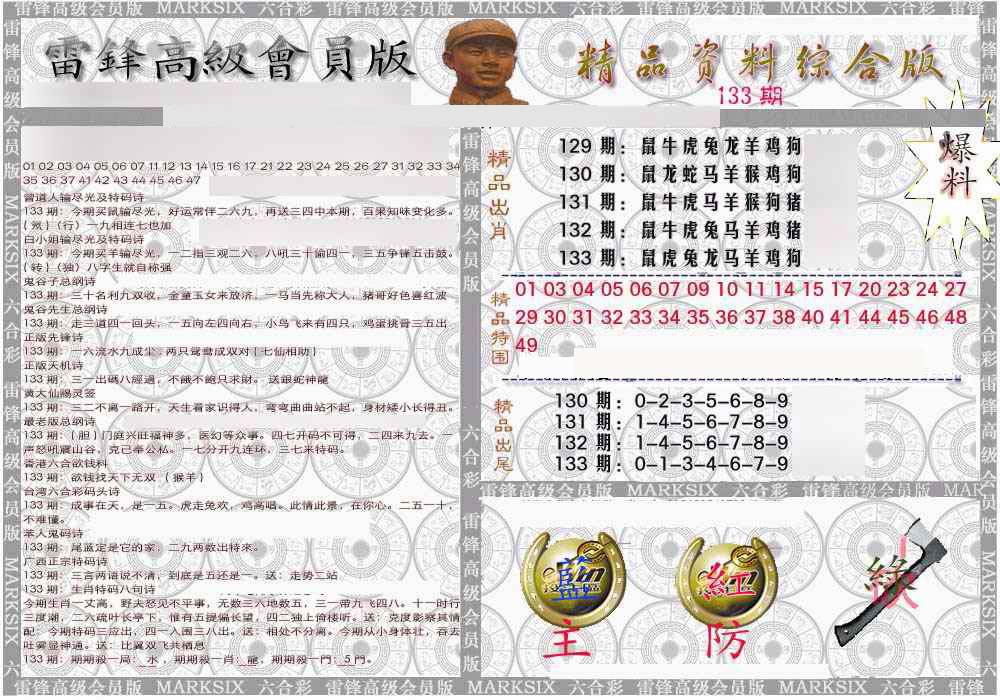 雷锋高级会员版 MARKSIX 六合彩 雷锋高级会员版 MARKSIX 六合彩 雷锋高级会员版 MARKSIX 六合彩 雷锋
雷鋒高級會員版
精品资料综合版
133 期
爆料
01 02 03 04 05 06 07 11 12 13 14 15 16 17 21 22 23 24 25 26 27 31 32 33 34
35 36 37 41 42 43 44 45 46 47
曾道人输尽光及特码诗
133 期：今期买鼠输尽光，好运常伴二六九，再送三四中本期，百果知味变化多。
{ 氖 }（行）一九相连七也加
白小姐输尽光及特码诗
133 期：今期买羊输尽光，一二指三观二六，八吼三十偷四一，三五争锋五击鼓。
{ 转 }（独）八字生就自称强
鬼谷子总纲诗
133 期：三十名利九双收，金童玉女来放济，一马当先称大人，猪哥好色喜红波
鬼谷先生总纲诗
133 期：走三道四一回头，一五向左四向右，小鸟飞来有四只，鸡蛋挑骨三五出
正版先锋诗
133 期：一六流水九成尘；两只鸳鸯成双对 { 七仙相助 }
正版天机诗
133 期：三一出碼八經過，不餓不飽只求財。 送跟蛇神龍
黄大仙赐灵签
133 期：三二不离一路开，天生看家识得人，弯弯曲曲站不起，身材矮小长得丑。
最老版总纲诗
133 期：{ 胆 } 门庭兴旺福神多，医幻等众事。四七开码不可得，二四来九去。一
声怒吼震山谷，克己奉公私。一七分开九连环，三七来特码。
香港六合欲钱料
133 期：欲钱找天下无双 { 猴羊 }
台湾六合彩码头诗
133 期：成事在天，是一五。虎走兔欢，鸡高唱。此情此景，在你心。二五一十，
不难懂。
苯人鬼码诗
133 期：尾蓝定是它的家，二九两数出特来。
广西正宗特码诗
133 期：三言两语说不清，到底是五还是一。送：走势二站
133 期：生肖特码八句诗
今期生肖一丈高，野夫怒见不平事，无数三六地数五，三一带九飞四八。十一时行
三度潮，二六疏叶长亭下，惟有五提偏长望，四二独上倚楼听。送：克度影察其情
配：今期特码三应出，四一入围三八出。送：相处不分离。今期从小身体壮，吞去
吐雾显神通。送：比翼双飞共栖息
133 期：期期殺一局：水，期期殺一肖：龍，期期殺一門：5 門。
精品出肖
129 期：鼠牛虎兔龙羊鸡狗
130 期：鼠龙蛇马羊猴鸡狗
131 期：鼠牛虎马羊猴狗猪
132 期：鼠牛虎兔马羊鸡猪
133 期：鼠虎兔龙马羊鸡狗
精品特围
01 03 04 05 06 07 09 10 11 14 15 17 20 23 24 27
29 30 31 32 33 34 35 36 37 38 40 41 44 45 46 48
49
精品出尾
130 期：0-2-3-5-6-8-9
131 期：1-4-5-6-7-8-9
132 期：1-4-5-6-7-8-9
133 期：0-1-3-4-5-7-9
藍
紅
綠
主
防
雷锋高级会员版 MARKSIX 六合彩 雷锋高级会员版 MARKSIX 六合彩 雷锋高级会员版 MARKSIX 六合彩 雷锋